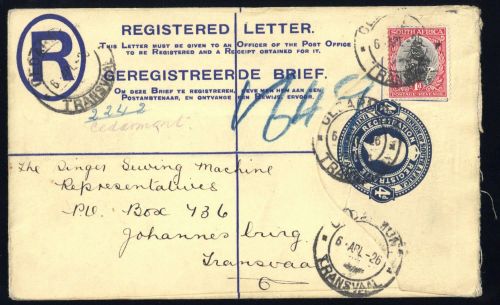 REGISTERED LETTER.
THIS LETTER MUST BE GIVEN TO AN OFFICER OF THE POST OFFICE
TO BE REGISTERED AND A RECEIPT OBTAINED FOR IT.
R
GEREGISTREERDE BRIEF.
OP DEZE BRIEF TE REGISTREREN,
POSTAMBTENAAR, EN ONTVANGEN
2242
Cedarmont
SOUTH AFRICA
1d
POSTAGE REVENUE
TRANSVAAL
REGISTRATION
4d
The Singer Sewing Machine
Representatives
P.O. Box 736
Johannesburg
Transvaal
6 APL 26
TRANSVAAL